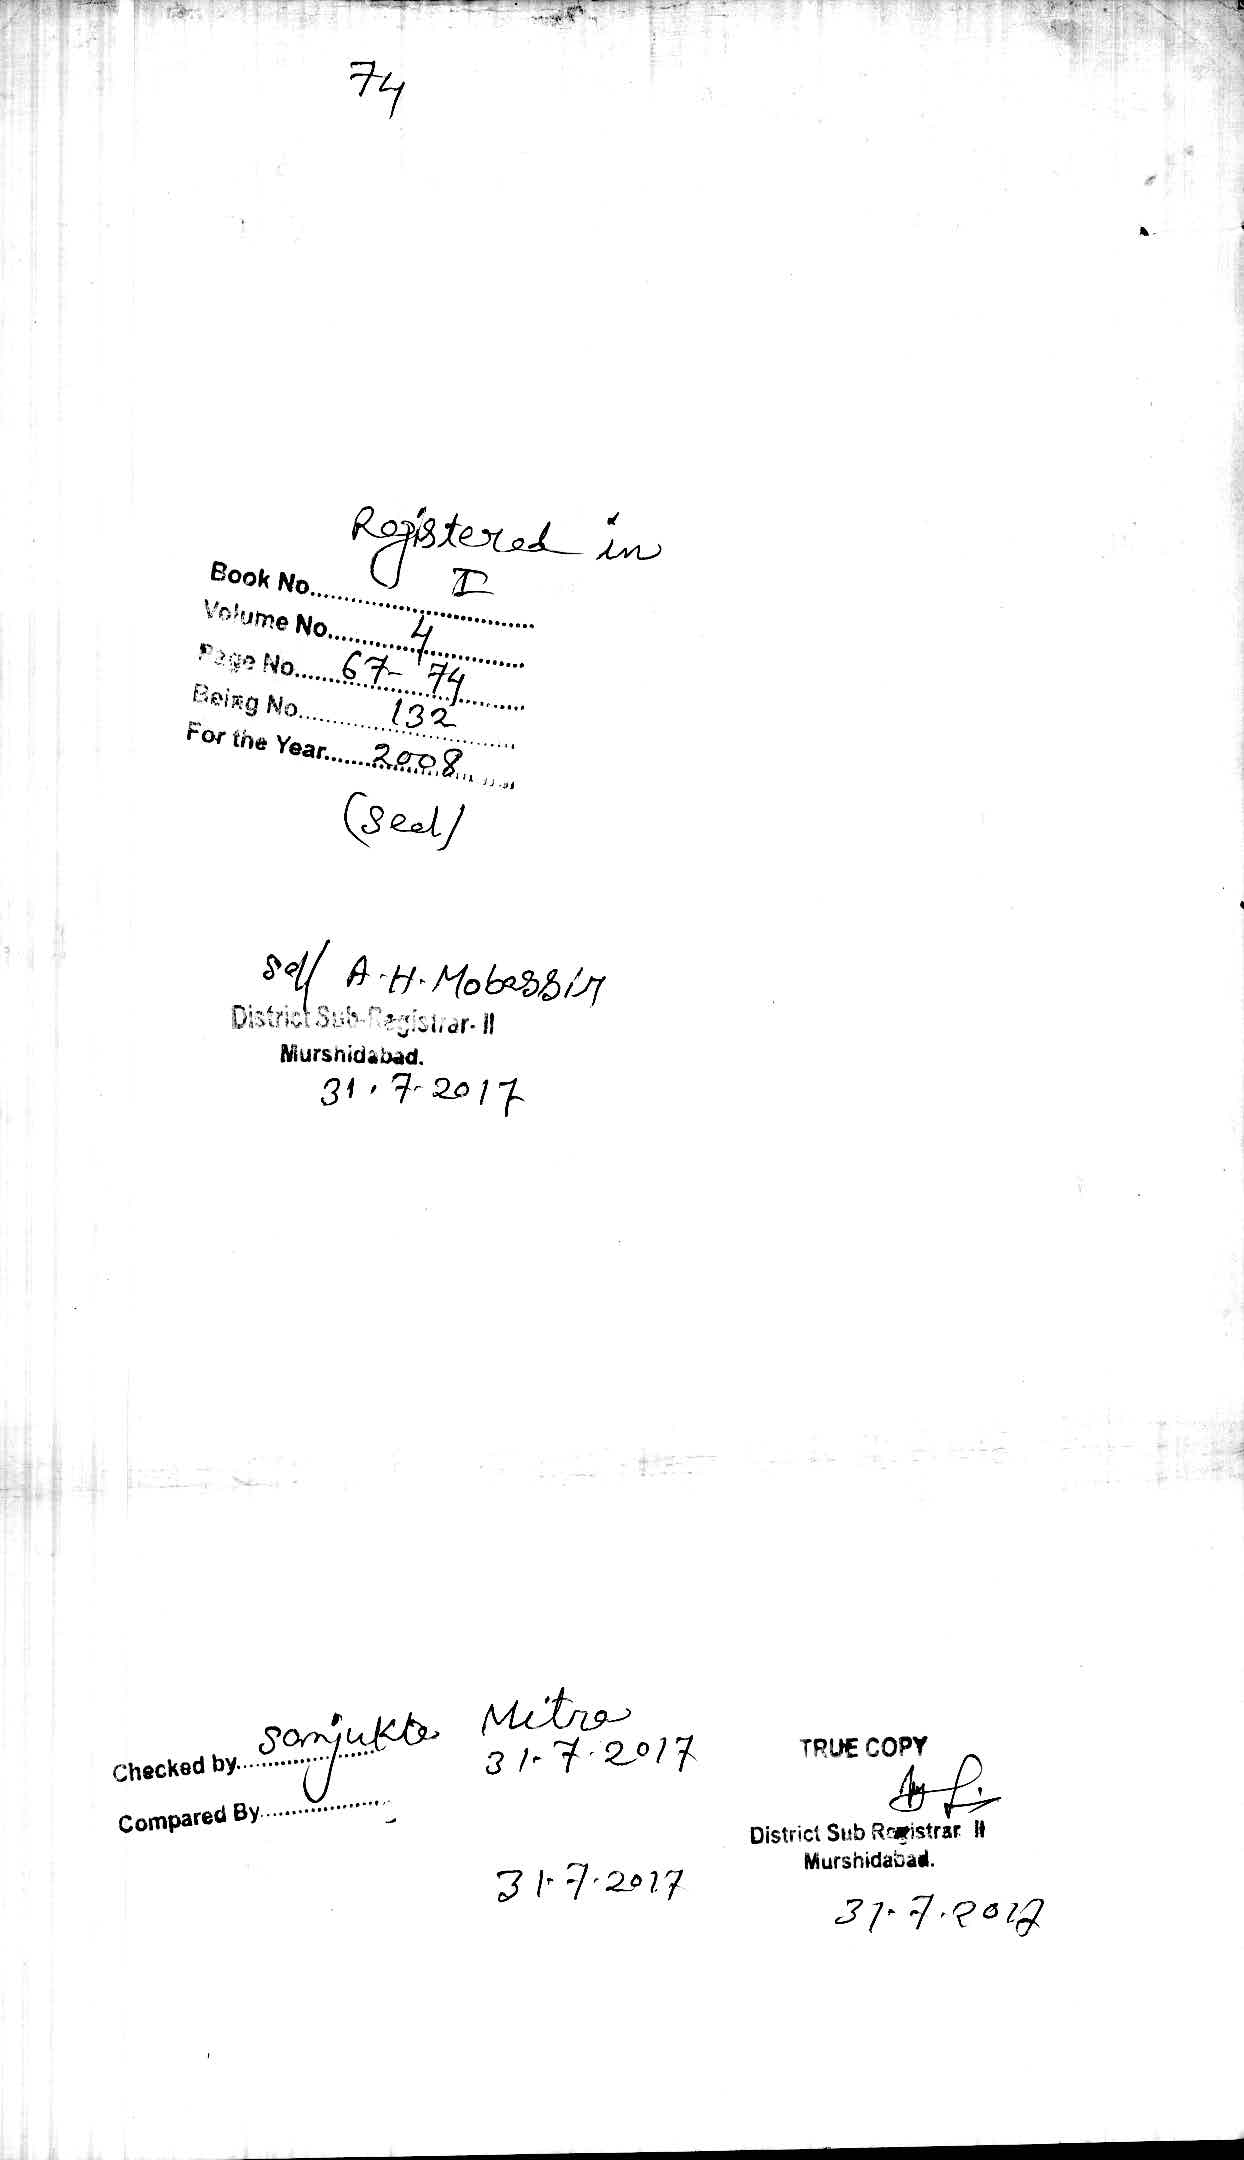 74
Registered in
Book No. I
Volume No. 4
Page No. 67-74
Being No. 132
For the Year 2008
(Seal)
Sd/ A.H. Mobassir
District Sub-Registrar-II
Murshidabad.
31.7.2017
Checked by Sanjukta Mitra
31.7.2017
Compared By
31.7.2017
TRUE COPY
District Sub Registrar II
Murshidabad.
31.7.2017